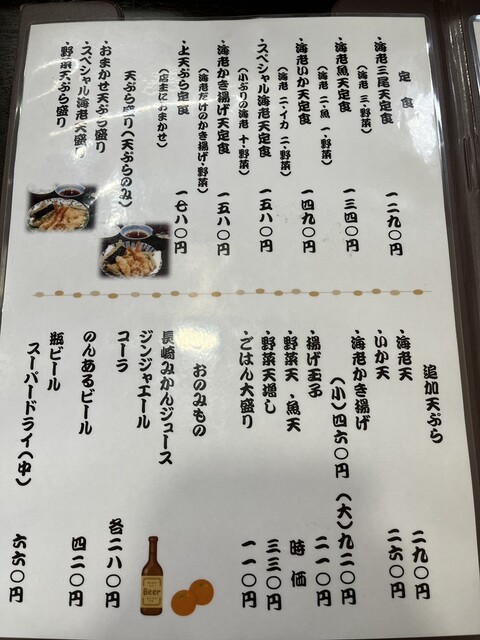 定食
・海老三尾天定食 一二九〇円
(海老 三・野菜)
・海老魚天定食 一三四〇円
(海老 二・魚 一・野菜)
・海老いか天定食 一四九〇円
(海老 二・イカ 二・野菜)
・スペシャル海老天定食 一五八〇円
(小ぶりの海老 十・野菜)
・海老かき揚げ天定食 一五八〇円
(海老だけのかき揚げ・野菜)
・上天ぷら定食 一七八〇円
(店主におまかせ)
天ぷら盛り(天ぷらのみ)
・おまかせ天ぷら盛り
・スペシャル海老天盛り
・野菜天ぷら盛り
追加天ぷら
・海老天 二九〇円
・いか天 二六〇円
・海老かき揚げ
(小)四六〇円 (大)九二〇円
・揚げ玉子 二一〇円
・野菜天、魚天 時価
・野菜天増し 三三〇円
・ごはん大盛り 一一〇円
おのみもの
長崎みかんジュース
ジンジャエール
コーラ 各二八〇円
のんあるビール 四二〇円
瓶ビール
スーパードライ(中) 六六〇円
Beer